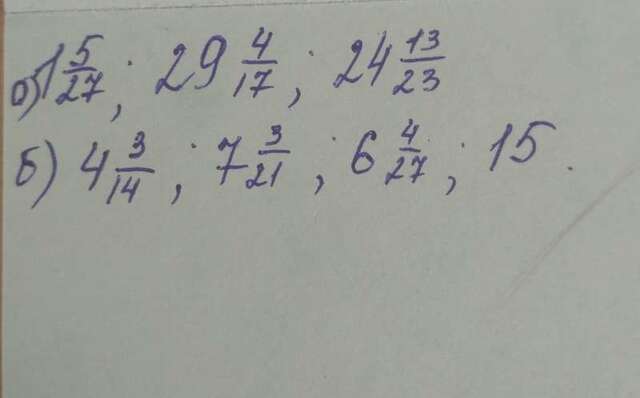 а) 1 5/27; 29 4/17; 24 13/23
б) 4 3/14; 7 3/21; 6 4/27; 15.